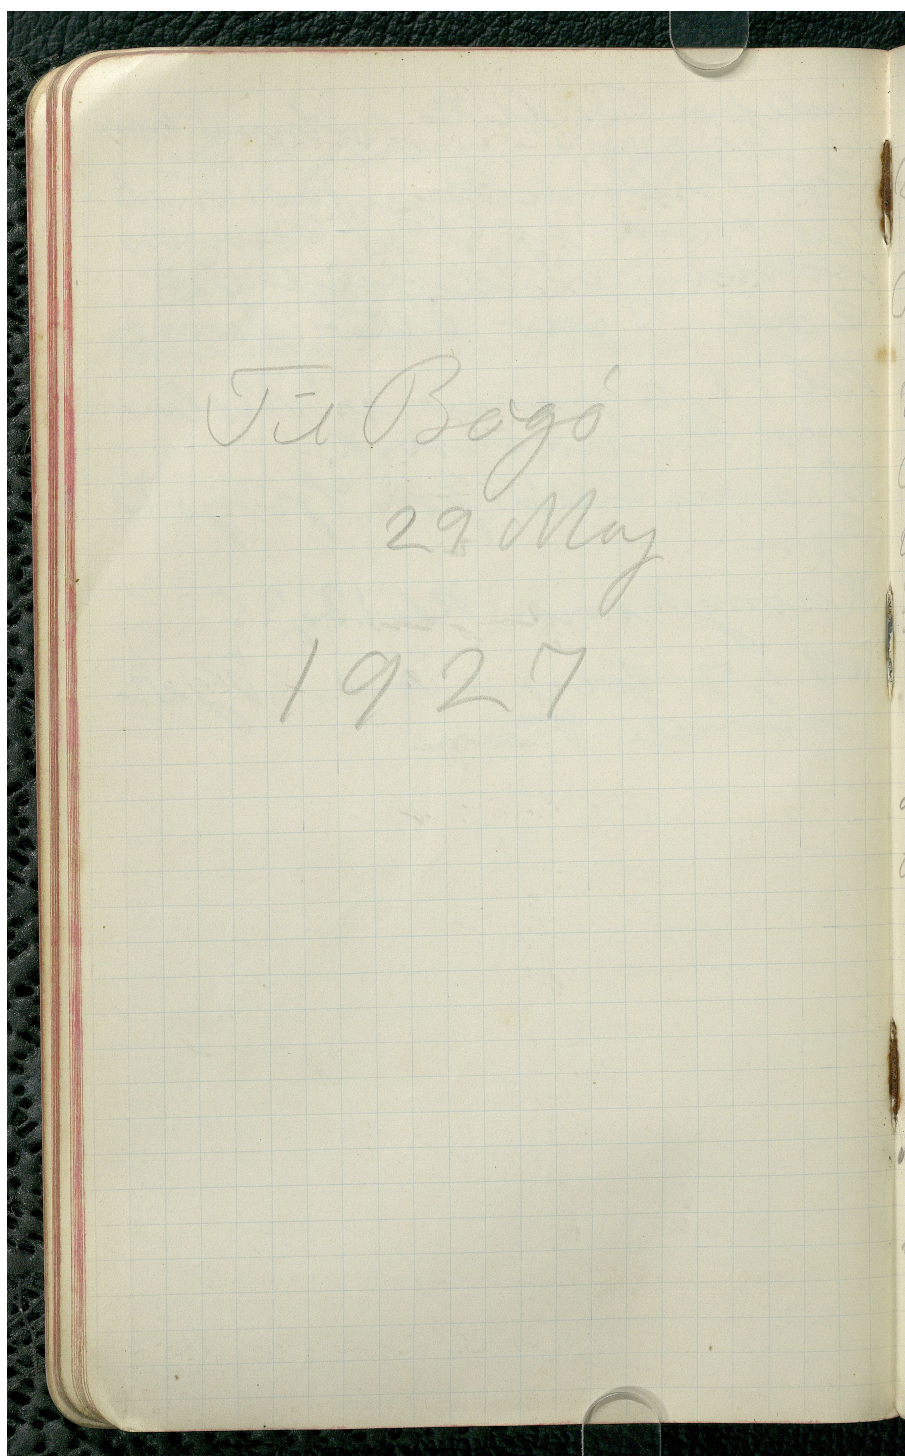 Til Bogó
29 Maj
1927